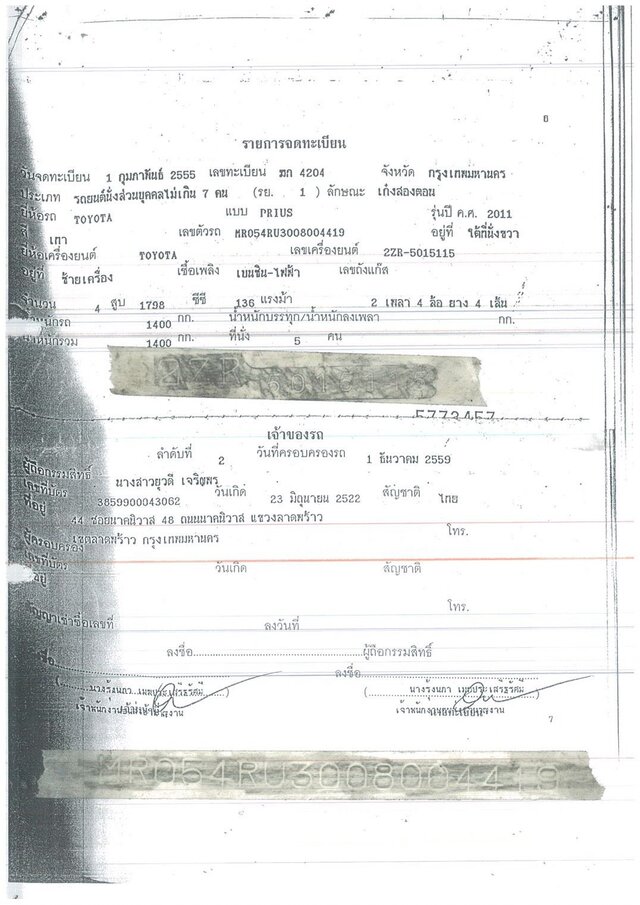 8
รายการจดทะเบียน
วันจดทะเบียน 1 กุมภาพันธ์ 2555 เลขทะเบียน ฆก 4204 จังหวัด กรุงเทพมหานคร
ประเภท รถยนต์นั่งส่วนบุคคลไม่เกิน 7 คน (รย. 1 ) ลักษณะ เก๋งสองตอน
ยี่ห้อรถ TOYOTA แบบ PRIUS รุ่นปี ค.ศ. 2011
สี เทา เลขตัวรถ MR054RU3008004419 อยู่ที่ ใต้ที่นั่งขวา
ยี่ห้อเครื่องยนต์ TOYOTA เลขเครื่องยนต์ 2ZR-5015115
อยู่ที่ ซ้ายเครื่อง เชื้อเพลิง เบนซิน-ไฟฟ้า เลขถังแก๊ส
จำนวน 4 สูบ 1798 ซีซี 136 แรงม้า 2 เพลา 4 ล้อ ยาง 4 เส้น
น้ำหนักรถ 1400 กก. น้ำหนักบรรทุก/น้ำหนักลงเพลา กก.
น้ำหนักรวม 1400 กก. ที่นั่ง 5 คน
5773457
เจ้าของรถ
ลำดับที่ 2 วันที่ครอบครองรถ 1 ธันวาคม 2559
ผู้ถือกรรมสิทธิ์ นางสาวยุวดี เจริญพร
เลขที่บัตร 3859900043062 วันเกิด 23 มิถุนายน 2522 สัญชาติ ไทย
ที่อยู่ 44 ซอยนาคนิวาส 48 ถนนนาคนิวาส แขวงลาดพร้าว
เขตลาดพร้าว กรุงเทพมหานคร โทร.
ผู้ครอบครอง
เลขที่บัตร วันเกิด สัญชาติ
ที่อยู่
โทร.
สัญญาเช่าซื้อเลขที่ ลงวันที่
ลงชื่อ ผู้ถือกรรมสิทธิ์
ลงชื่อ ลงชื่อ
7
MR054RU3008004419